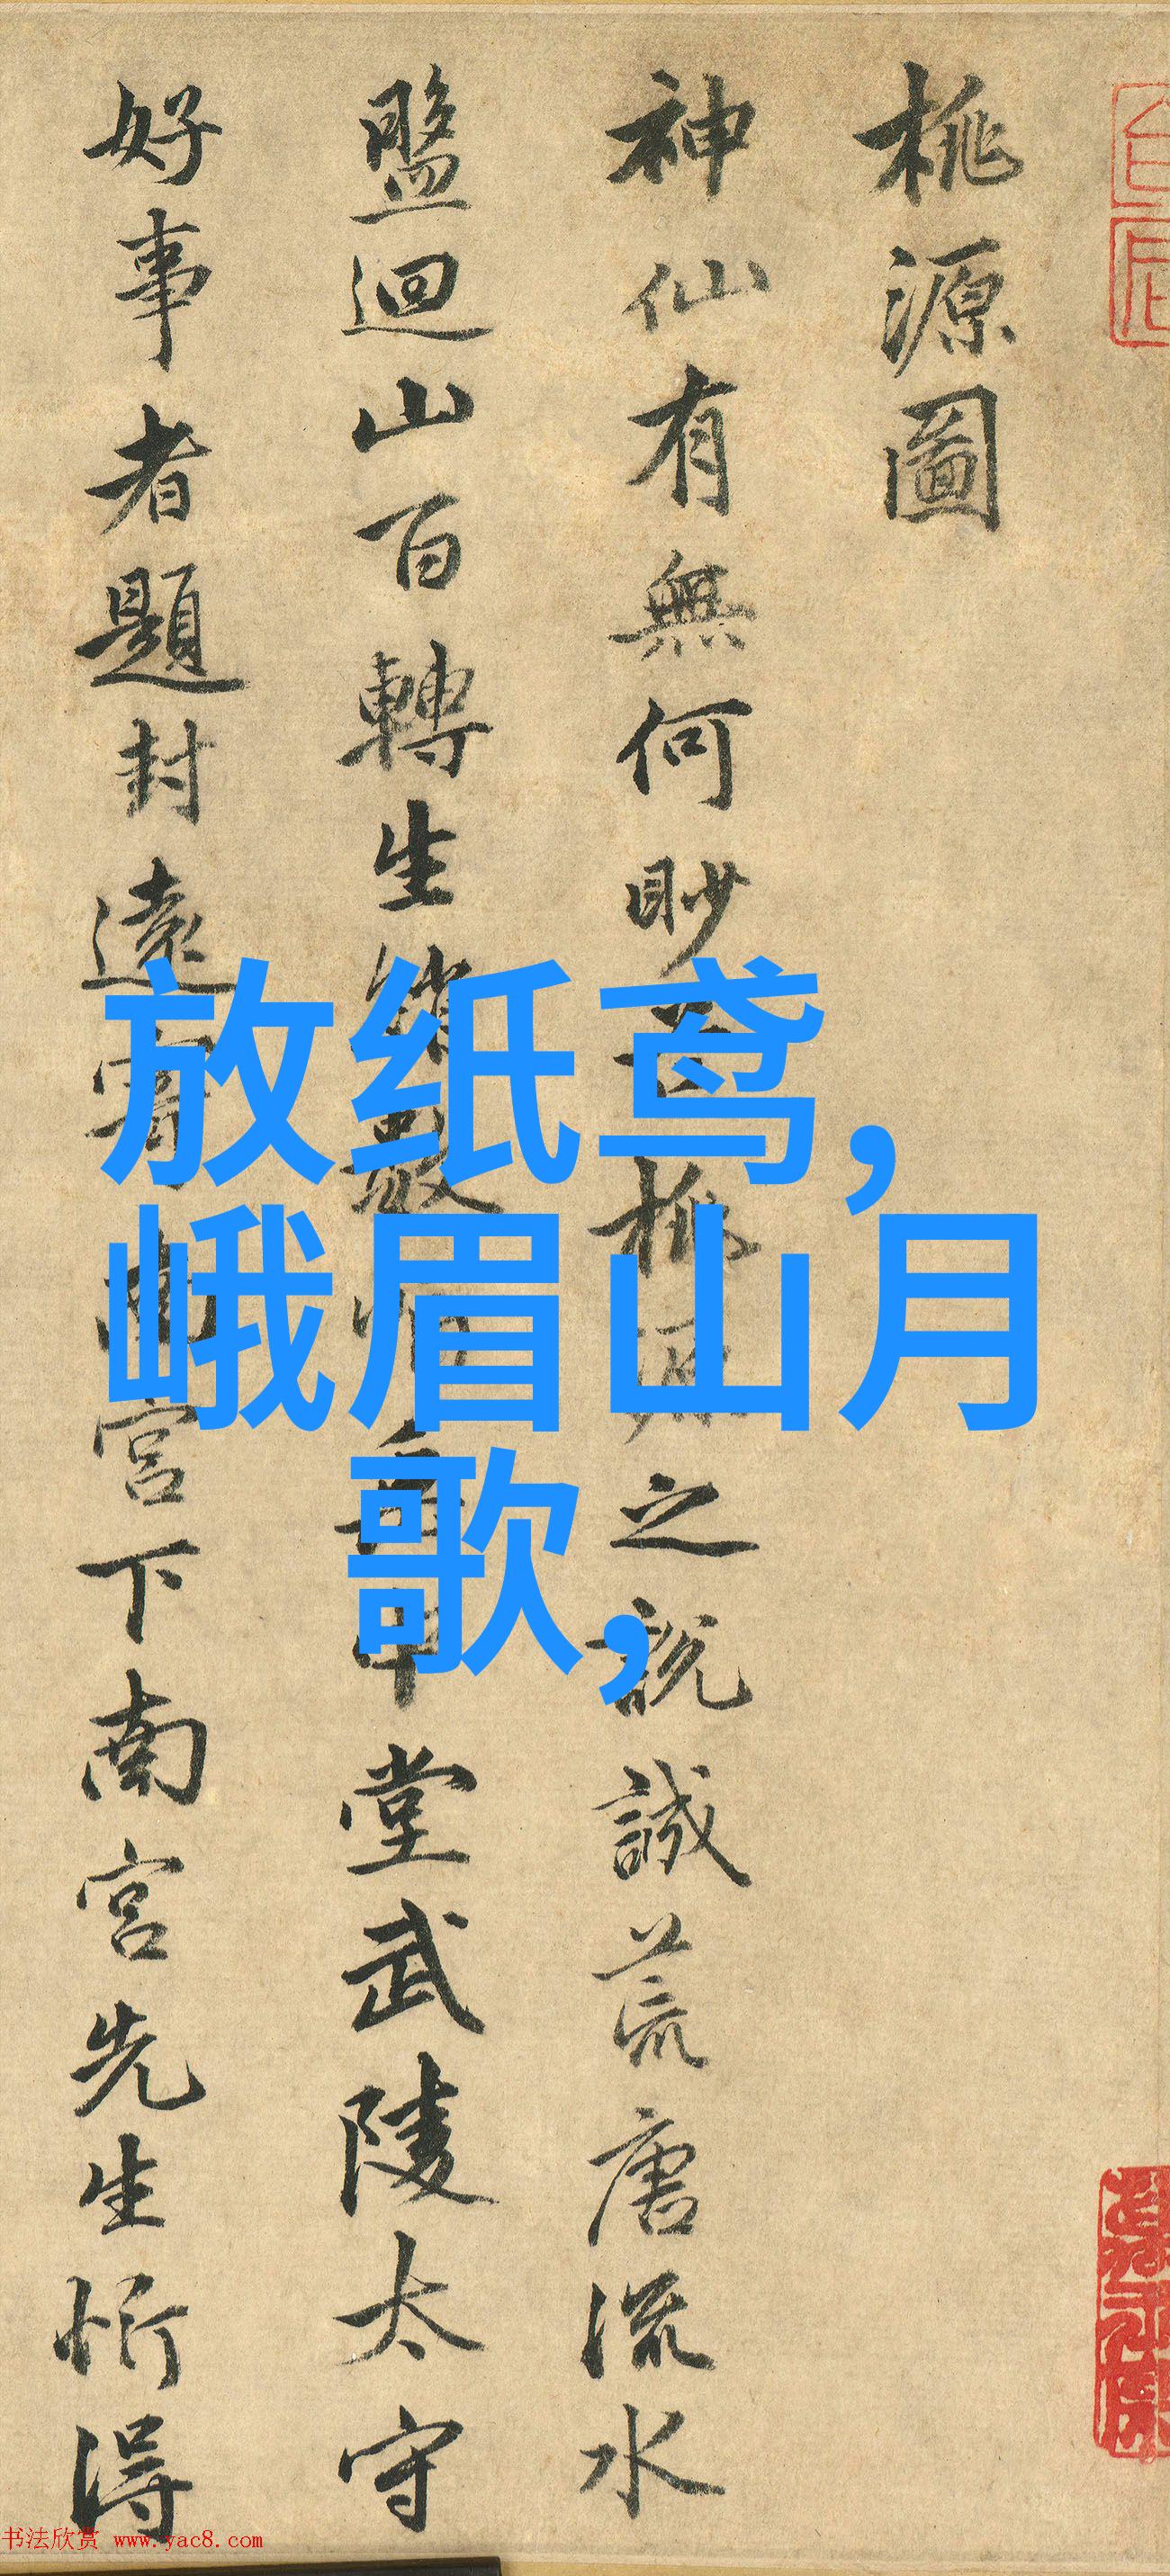 桃源圖
神仙有無何眇芒桃源之說誠荒唐流水
盤迴山百轉生綃數幅垂中堂武陵太守
好事者題封遠寄南宮下南宮先生忻得
放纸鸢,
峨眉山月
歌,
书法欣赏 www.yac8.com